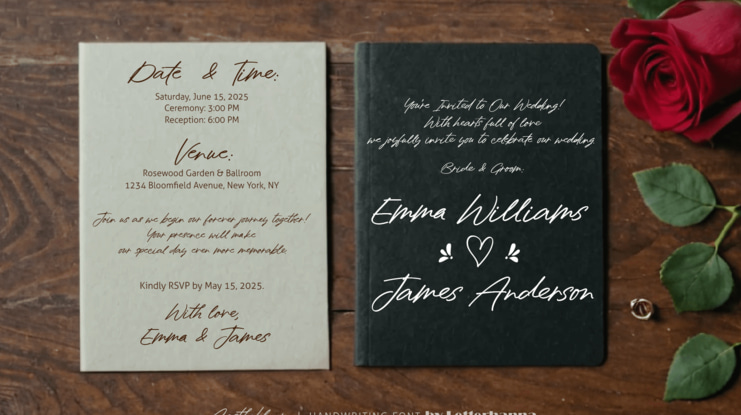 Date & Time:
Saturday, June 15, 2025
Ceremony: 3:00 PM
Reception: 6:00 PM
Venue:
Rosewood Garden & Ballroom
1234 Bloomfield Avenue, New York, NY
Join us as we begin our forever journey together!
Your presence will make
our special day even more memorable.
Kindly RSVP by May 15, 2025.
With love,
Emma & James
You're Invited to Our Wedding!
With hearts full of love
we joyfully invite you to celebrate our wedding.
Bride & Groom:
Emma Williams
James Anderson
HANDWRITING FONT by Letterhanna